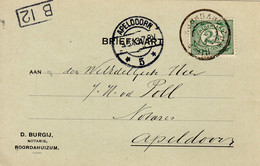 B 12
APELDOORN
5
BRIEFKAART
2½
AAN den Weledelgestr. Heer
J. H. v. d. Poll
Notaris
Apeldoorn
D. BURGIJ,
NOTARIS,
ROORDAHUIZUM.